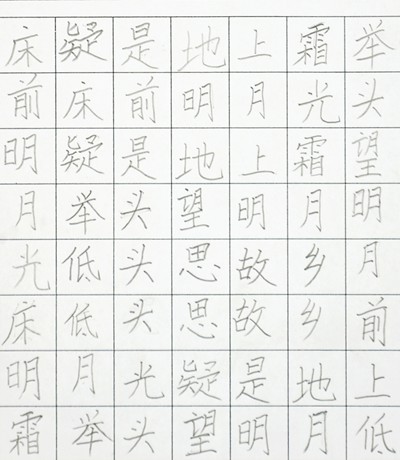 床疑是地上霜举
前床前明月光头
明疑是地上霜望
月举头望明月明
光低头思故乡月
床低头思故乡前
明月光疑是地上
霜举头望明月低